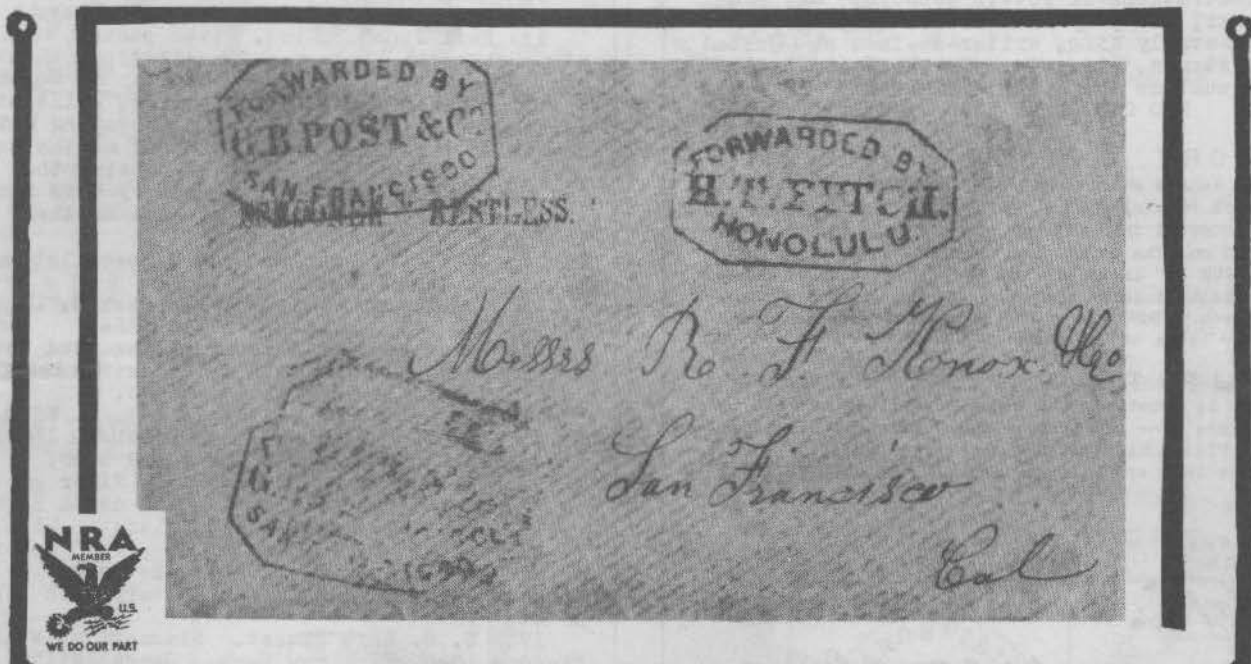 FORWARDED BY
G.B. POST & Co.
SAN FRANCISCO
RESTLESS.
FORWARDED BY
H.T. FITCH.
HONOLULU.
Messrs R. F. Knox &Co
San Francisco
Cal
G.
SAN
NRA
MEMBER
U.S.
WE DO OUR PART